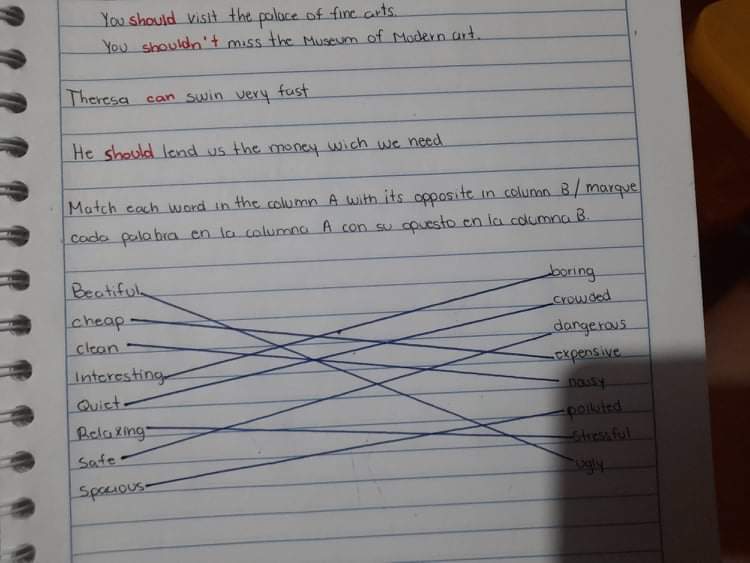 You should visit the palace of fine arts.
You shouldn't miss the Museum of Modern art.
Theresa can swin very fast
He should lend us the money wich we need
Match each word in the column A with its opposite in column B/ marque
cada palabra en la columna A con su opuesto en la columna B.
Beatiful
cheap
clean
Interesting
Quiet
Relaxing
Safe
Spacious
boring
crowded
dangerous
expensive
noisy
polluted
stressful
ugly